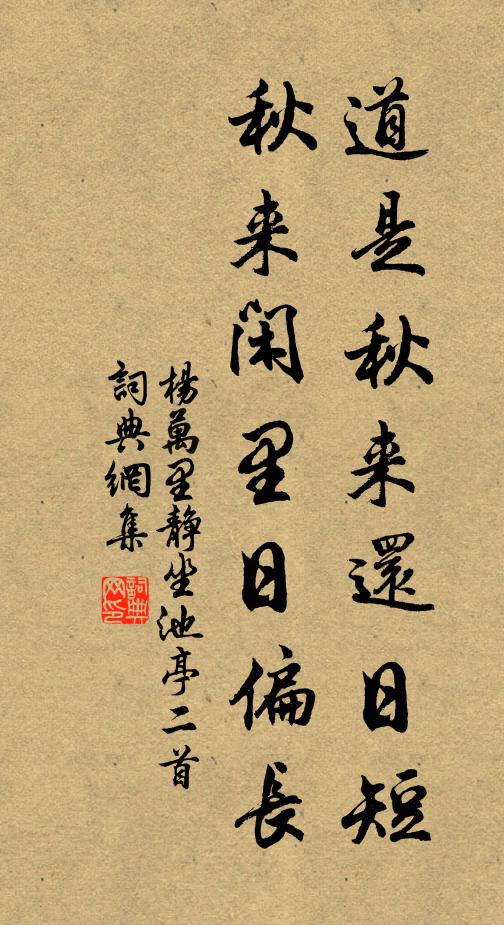 道是秋来還日短
秋来閑里日偏長
楊萬里靜坐池亭二首
詞典網集
詞典網印